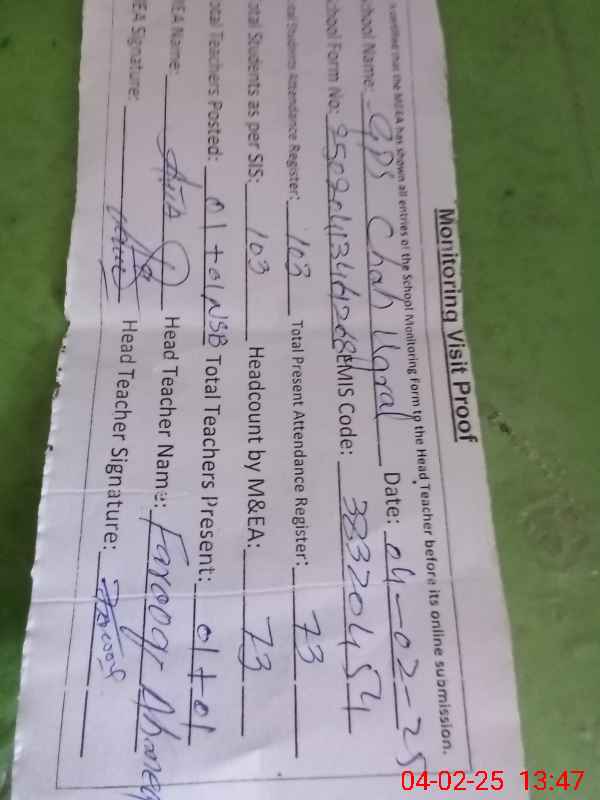 Monitoring Visit Proof
is certified that the M&EA has shown all entries of the School Monitoring Form to the Head Teacher before its online submission.
chool Name: GPS Chah Ugral Date: 04-02-25
chool Form No: EMIS Code: 38320454
Students Attendance Register: 103 Total Present Attendance Register: 73
otal Students as per SIS: 103 Headcount by M&EA: 73
otal Teachers Posted: 01+01 NSB Total Teachers Present: 01+01
EA Name: Head Teacher Name: Farooq
EA Signature: Head Teacher Signature: Farooq
04-02-25 13:47